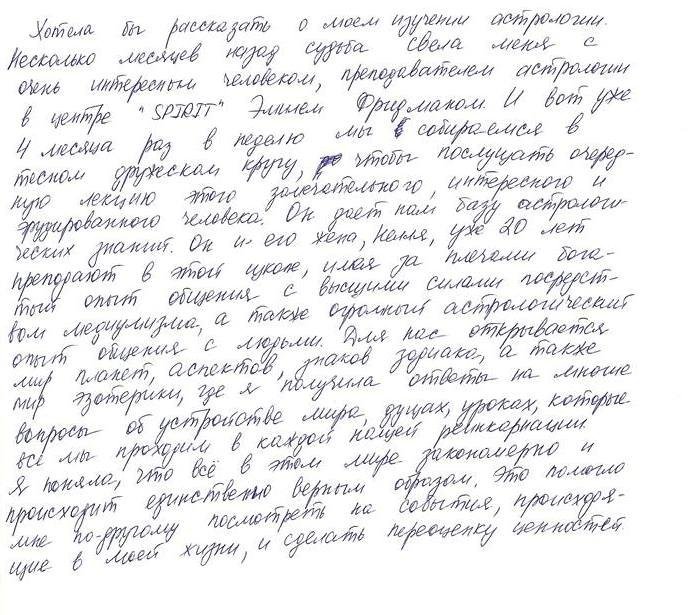 Хотела бы рассказать о моем изучении астрологии.
Несколько месяцев назад судьба свела меня с
очень интересным человеком, преподавателем астрологии
в центре "SPIRIT" Эмилем Фридманом. И вот уже
4 месяца раз в неделю мы собираемся в
тесном дружеском кругу, чтобы послушать очеред-
ную лекцию этого замечательного, интересного и
эрудированного человека. Он дает нам базу астрологи-
ческих знаний. Он и его жена, Нелля, уже 20 лет
преподают в этой школе, имея за плечами бога-
тый опыт общения с высшими силами посредст-
вом медиумизма, а также огромный астрологический
опыт общения с людьми. Для нас открывается
мир планет, аспектов, знаков зодиака, а также
мир эзотерики, где я получила ответы на многие
вопросы об устройстве мира, душах, уроках, которые
все мы проходим в каждой нашей реинкарнации.
Я поняла, что всё в этом мире закономерно и
происходит единственно верным образом. Это помогло
мне по-другому посмотреть на события, происходя-
щие в моей жизни, и сделать переоценку ценностей